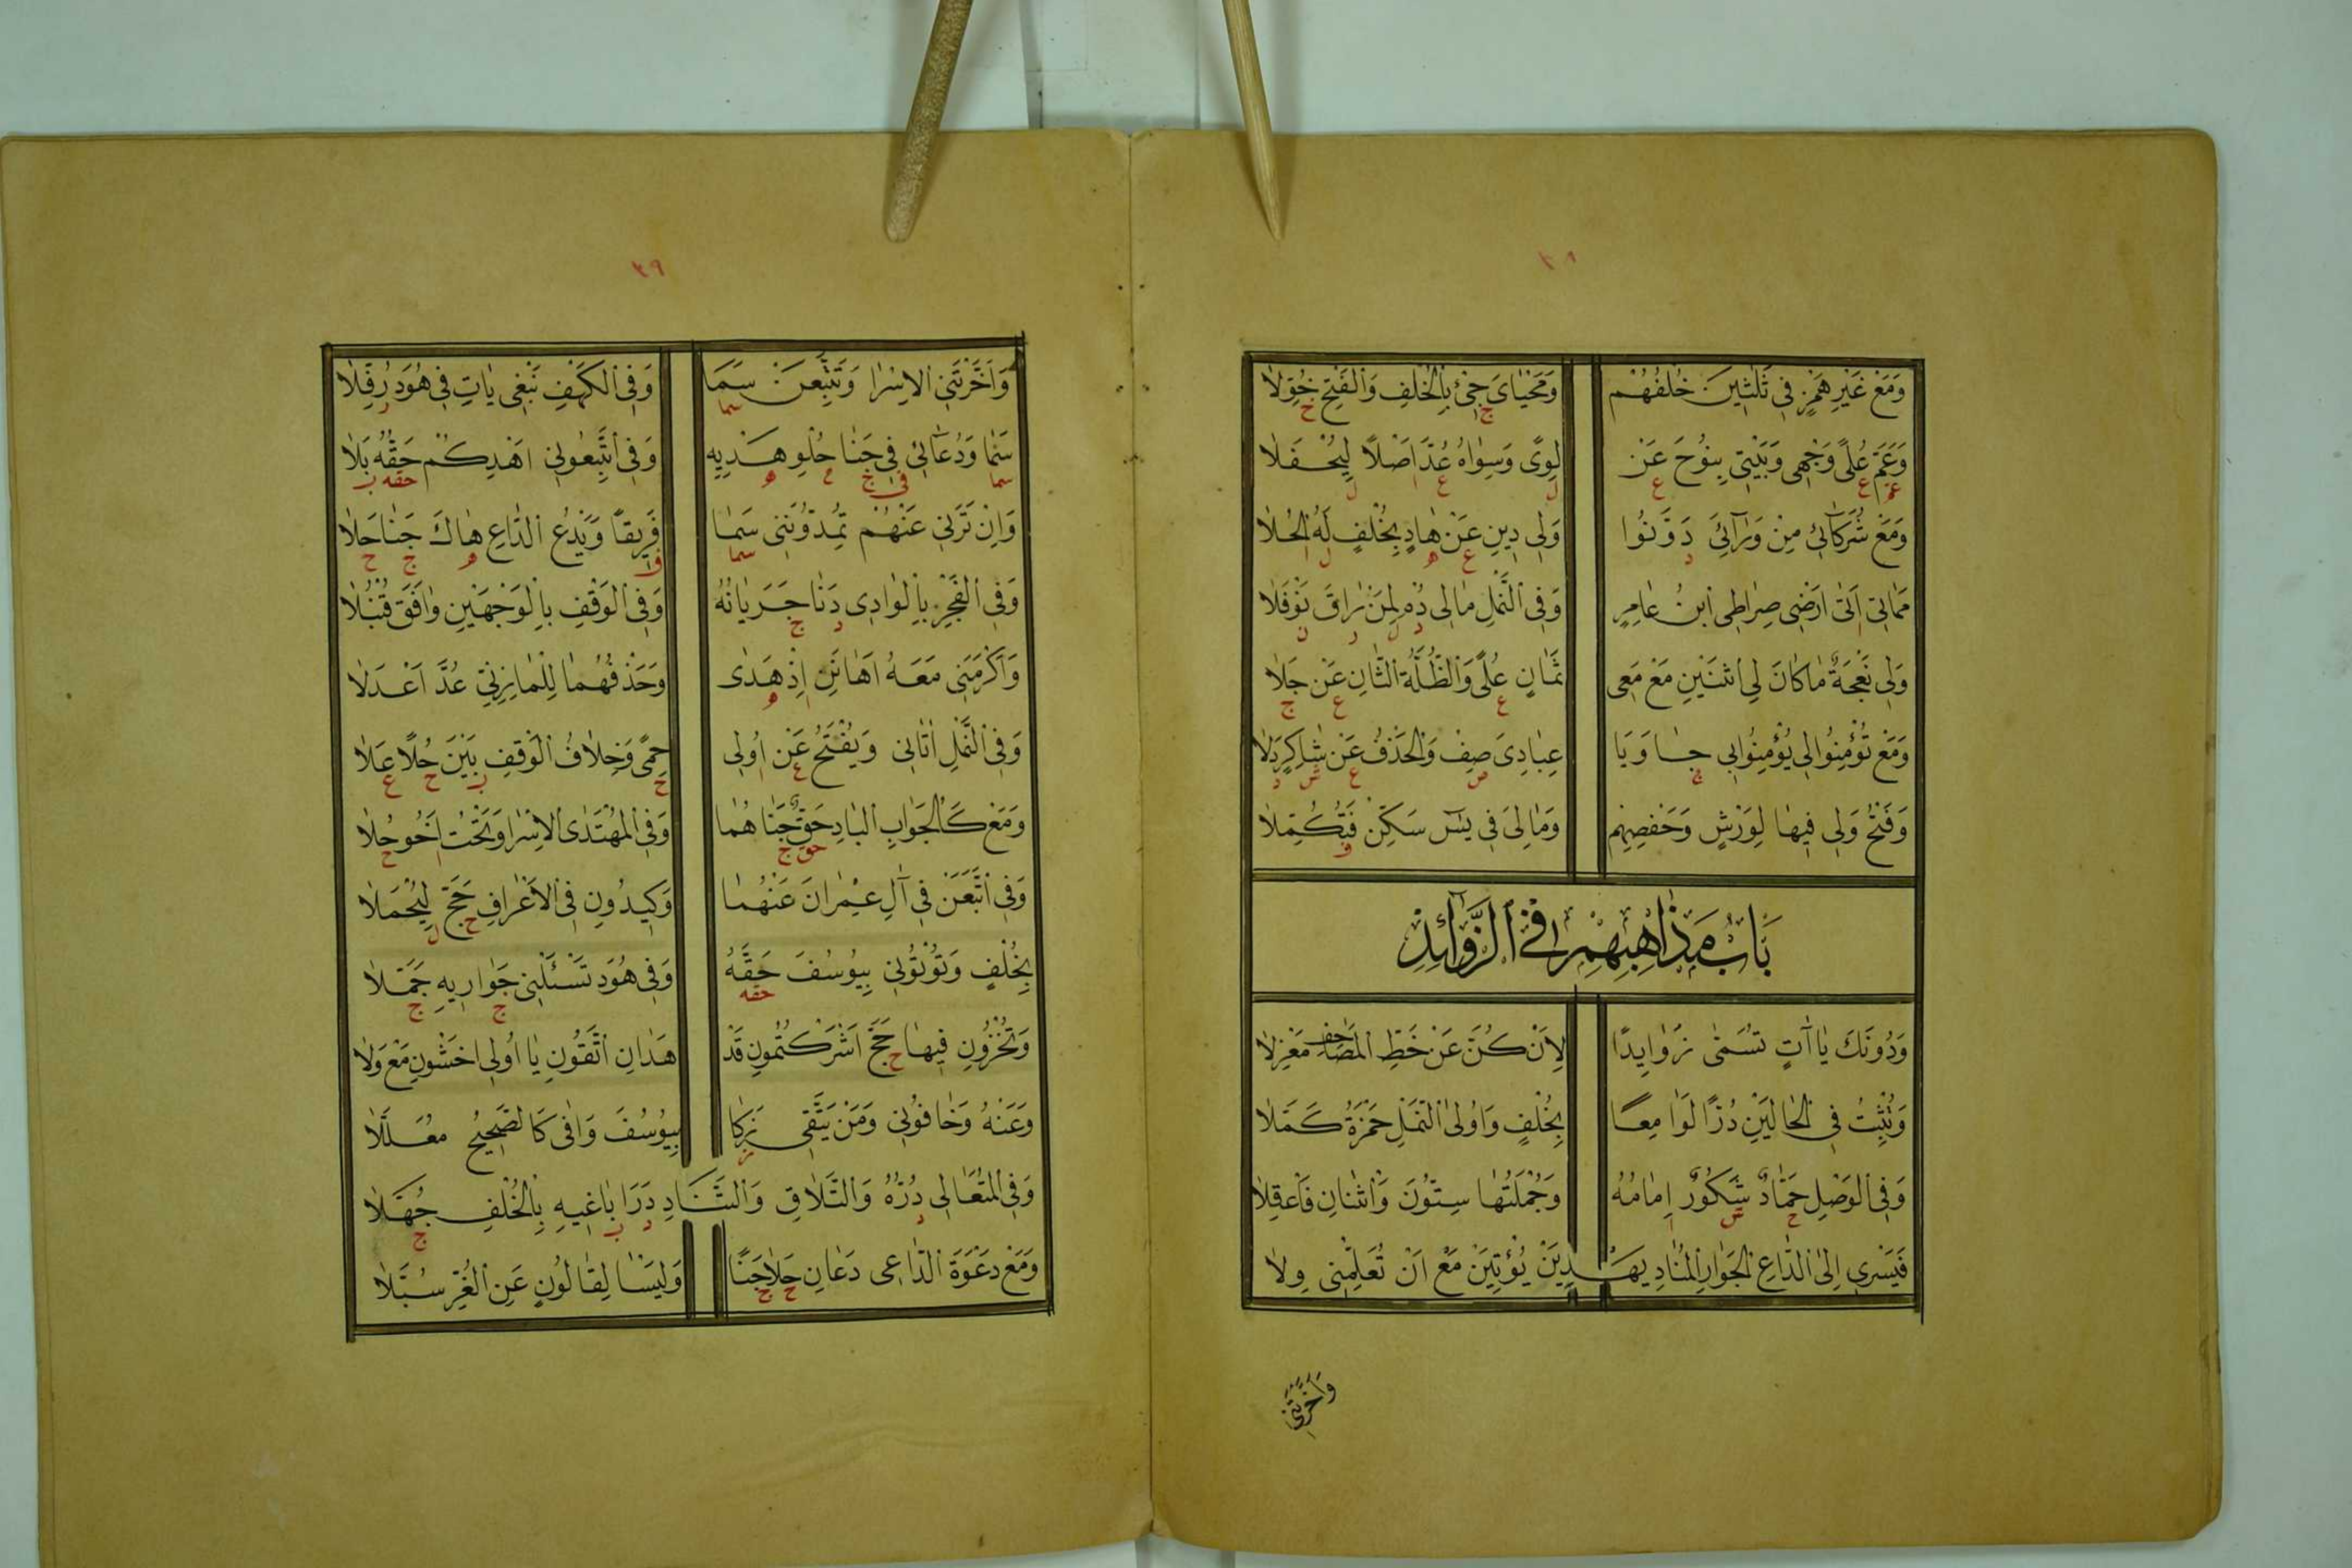 ٣٨
وَمَعْ غَيْرِ هَمْزٍ فِي ثَلٰثِينَ خُلْفُهُمْ وَمَحْيٰايَ جِئْ بِالْخُلْفِ وَالْفَتْحِ خُوِّلاٰ
وَعَمَّ عُلًى وَجْهِى وَبَيْتِى بِنُوحَ عَنْ لِوًى وَسِوٰاهُ عُدَّ اَصْلاً لِيُحْفَلاٰ
وَمَعْ شُرَكَائِى مِنْ وَرَآئِيَ دَوَّنُوا وَلِى دِينِ عَنْ هٰادٍ بِخُلْفٍ لَهُ الْحُلاٰ
مَمَاتِى اَتٰى اَرْضِى صِرٰاطِى ابْنُ عٰامِرٍ وَفِى النَّمْلِ مٰالِى دُمْ لِمَنْ رٰاقَ نَوْفَلاٰ
وَلِى نَعْجَةٌ مٰا كٰانَ لِى اثْنَيْنِ مَعْ مَعِى ثَمٰانٍ عُلًى وَالظُّلَّةُ الثّٰانِ عَنْ جَلاٰ
وَمَعْ تُؤْمِنُوا لِى يُؤْمِنُوا بِى جٰا وَيَا عِبٰادِىَ صِفْ وَالْحَذْفُ عَنْ شٰاكِرٍ دَلاٰ
وَفَتْحُ وَلِى فِيهٰا لِوَرْشٍ وَحَفْصِهِمْ وَمٰالِىَ فِى يٰسٓ سَكِّنْ فَتَكْمُلاٰ
بَابُ مَذٰاهِبِهِمْ فِى الزَّوَآئِدِ
وَدُونَكَ يٰا آتٍ تُسَمّٰى زَوٰايِدًا لِاَنْ كُنَّ عَنْ خَطِّ الْمَصٰاحِفِ مَعْزِلاٰ
وَتُثْبِتُ فِى الْحٰالَيْنِ دُرًّا لَوٰامِعًا بِخُلْفٍ وَاُولَى النَّمْلِ حَمْزَةُ كَمَّلاٰ
وَفِى الْوَصْلِ حَمّٰادٌ شَكُورٌ اِمٰامُهُ وَجُمْلَتُهٰا سِتُّونَ وَاثْنٰانِ فَاعْقِلاٰ
فَيَسْرِى اِلَى الدّٰاعِ الْجَوٰارِ الْمُنٰادِ يَهْدِيَنْ يُؤْتِيَنْ مَعْ اَنْ تُعَلِّمَنِى وِلاٰ
وَاَخَّرْتَنِى
٣٩
وَاَخَّرْتَنِى الْاِسْرٰا وَتَتَّبِعَنْ سَمَا وَفِى الْكَهْفِ نَبْغِى يَاتِ فِى هُودَ رُفِّلاٰ
سَمٰا وَدُعٰآئِى فِى جَنٰا حُلْوِ هَدْيِهِ وَفِى اتَّبِعُونِى اَهْدِكُمْ حَقُّهُ بَلاٰ
وَاِنْ تَرَنِى عَنْهُمْ تُمِدُّونَنِى سَمٰا فَرِيقًا وَيَدْعُ الدّٰاعِ هٰاكَ جَنٰا حَلاٰ
وَفِى الْفَجْرِ بِالْوٰادِى دَنٰا جَرَيٰانُهُ وَفِى الْوَقْفِ بِالْوَجْهَيْنِ وٰافَقَ قُنْبُلاٰ
وَاَكْرَمَنِى مَعَهُ اَهٰانَنِ اِذْ هَدٰى وَحَذْفُهُمٰا لِلْمٰازِنِىِّ عُدَّ اَعْدَلاٰ
وَفِى النَّمْلِ اٰتٰانِى وَيُفْتَحُ عَنْ اُولِى حِمًى وَخِلاٰفُ الْوَقْفِ بَيْنَ حُلاً عَلاٰ
وَمَعْ كَالْجَوٰابِ الْبٰادِ حَقٌّ جَنٰاهُمٰا وَفِى الْمُهْتَدٰى الْاِسْرٰا وَتَحْتُ اَخُو حُلاٰ
وَفِى اتَّبَعَنْ فِى آلِ عِمْرٰانَ عَنْهُمٰا وَكِيدُونِ فِى الْاَعْرٰافِ حَجَّ لِيُحْمَلاٰ
بِخُلْفٍ وَتُؤْتُونِى بِيُوسُفَ حَقَّهُ وَفِى هُودَ تَسْئَلْنِى جَوٰارِيهِ جَمَّلاٰ
وَتُخْزُونِ فِيهٰا حَجَّ اَشْرَكْتُمُونِ قَدْ هَدٰانِ اتَّقُونِ يٰا اُولِى اخْشَوْنِ مَعْ وَلاٰ
وَعَنْهُ وَخٰافُونِى وَمَنْ يَتَّقِى زَكٰا بِيُوسُفَ وَافٰى كَالصَّحِيحِ مُعَلَّلاٰ
وَفِى الْمُتَعٰالِى دُرُّهُ وَالتَّلاٰقِ وَالتَّنَادِ دَرَا بٰاغِيهِ بِالْخُلْفِ جُهَّلاٰ
وَمَعْ دَعْوَةَ الدّٰاعِى دَعٰانِ حَلاٰ جَنًا وَلَيْسَا لِقٰالُونٍ عَنِ الْغُرِّ سُبَّلاٰ